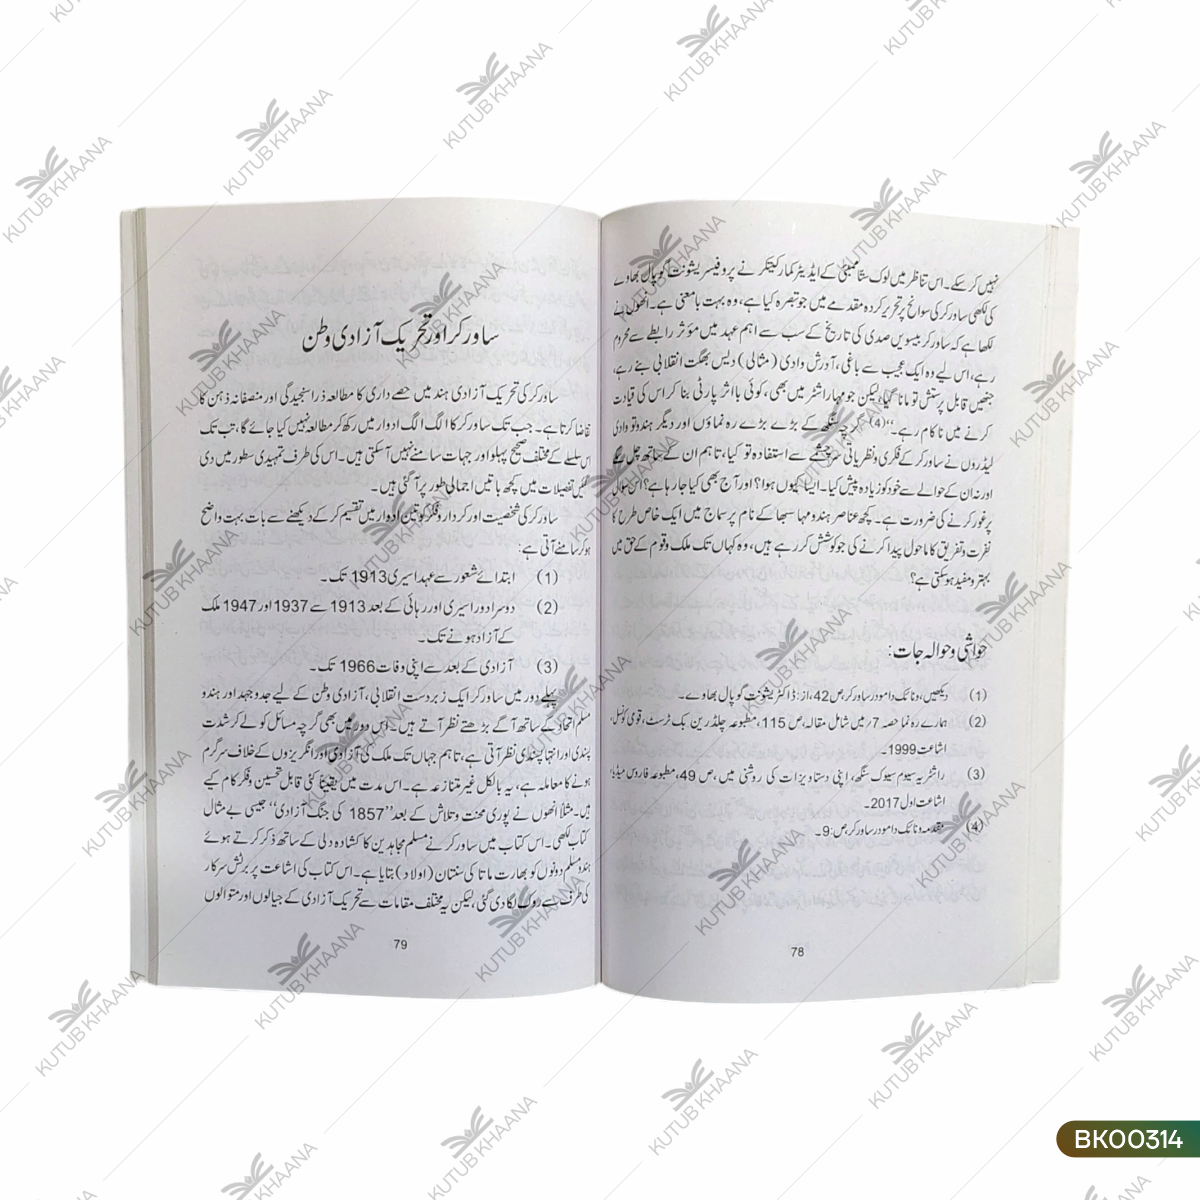 نہیں کر سکے۔ اس تناظر میں لوک ستا ممبئی کے ایڈیٹر کمار کیتکر نے پروفیسر یشونت گوپال بھاوے
کی لکھی ساورکر کی سوانح پر تحریر کردہ مقدمے میں جو تبصرہ کیا ہے، وہ بہت بامعنی ہے۔ انھوں نے
لکھا ہے کہ ساورکر بیسویں صدی کی تاریخ کے سب سے اہم عہد میں مؤثر رابطے سے محروم
رہے، اس لیے وہ ایک عجیب سے باغی، آدرش وادی (مثالی) دیس بھگت انقلابی بنے رہے،
جنھیں قابل پرستش تو مانا گیا، لیکن جو مہاراشٹر میں بھی، کوئی با اثر پارٹی بنا کر اس کی قیادت
کرنے میں ناکام رہے۔“(4) گرچہ سنگھ کے بڑے بڑے رہ نماؤں اور دیگر ہندوتو وادی
لیڈروں نے ساورکر کے فکری و نظریاتی سرچشمے سے استفادہ تو کیا، تاہم ان کے ساتھ چل سکے
اور نہ ان کے حوالے سے خود کو زیادہ پیش کیا۔ ایسا کیوں ہوا؟ اور آج بھی کیا جا رہا ہے؟ اس سوال
پر غور کرنے کی ضرورت ہے۔ کچھ عناصر ہندو مہا سبھا کے نام پر سماج میں ایک خاص طرح کا
نفرت و تفریق کا ماحول پیدا کرنے کی جو کوشش کر رہے ہیں، وہ کہاں تک ملک و قوم کے حق میں
بہتر و مفید ہو سکتی ہے؟
حواشی و حوالہ جات:
(1) دیکھیں، ونائک دامودر ساورکر، ص 42، از: ڈاکٹر یشونت گوپال بھاوے۔
(2) ہمارے رہ نما حصہ 7 میں شامل مقالہ، ص 115، مطبوعہ چلڈرین بک ٹرسٹ، قومی کونسل،
اشاعت 1999۔
(3) راشٹریہ سیوم سیوک سنگھ، اپنی دستاویزات کی روشنی میں، ص 49، مطبوعہ فاروس میڈیا،
اشاعت اول 2017۔
(4) مقدمہ ونائک دامودر ساورکر، ص: 9۔
78
ساورکر اور تحریک آزادی وطن
ساورکر کی تحریک آزادی ہند میں حصے داری کا مطالعہ ذرا سنجیدگی اور منصفانہ ذہن کا
تقاضا کرتا ہے۔ جب تک ساورکر کا الگ الگ ادوار میں رکھ کر مطالعہ نہیں کیا جائے گا، تب تک
اس سلسلے کے مختلف صحیح پہلو اور جہات سامنے نہیں آ سکتی ہیں۔ اس کی طرف تمہیدی سطور میں دی
گئیں تفصیلات میں کچھ باتیں اجمالی طور پر آ گئی ہیں۔
ساورکر کی شخصیت اور کردار و فکر کو تین ادوار میں تقسیم کر کے دیکھنے سے بات بہت واضح
ہو کر سامنے آتی ہے:
(1) ابتدائے شعور سے عہد اسیری 1913 تک۔
(2) دوسرا دور اسیری اور رہائی کے بعد 1913 سے 1937 اور 1947 ملک
کے آزاد ہونے تک۔
(3) آزادی کے بعد سے اپنی وفات 1966 تک۔
پہلے دور میں ساورکر ایک زبردست انقلابی، آزادی وطن کے لیے جدوجہد اور ہندو
مسلم اتحاد کے ساتھ آگے بڑھتے نظر آتے ہیں۔ اس دور میں بھی گرچہ مسائل کو لے کر شدت
پسندی اور انتہا پسندی نظر آتی ہے، تاہم جہاں تک ملک کی آزادی اور انگریزوں کے خلاف سرگرم
ہونے کا معاملہ ہے، یہ بالکل غیر متنازعہ ہے۔ اس مدت میں یقیناً کئی قابل تحسین و فکر کام کیے
ہیں۔ مثلاً انھوں نے پوری محنت و تلاش کے بعد ”1857 کی جنگ آزادی“ جیسی بے مثال
کتاب لکھی۔ اس کتاب میں ساورکر نے مسلم مجاہدین کا کشادہ دلی کے ساتھ ذکر کرتے ہوئے
ہندو مسلم دونوں کو بھارت ماتا کی سنتان (اولاد) بتایا ہے۔ اس کتاب کی اشاعت پر برٹش سرکار
کی طرف سے روک لگا دی گئی، لیکن یہ مختلف مقامات سے تحریک آزادی کے جیالوں اور متوالوں
79
KUTUB KHAANA
BK00314